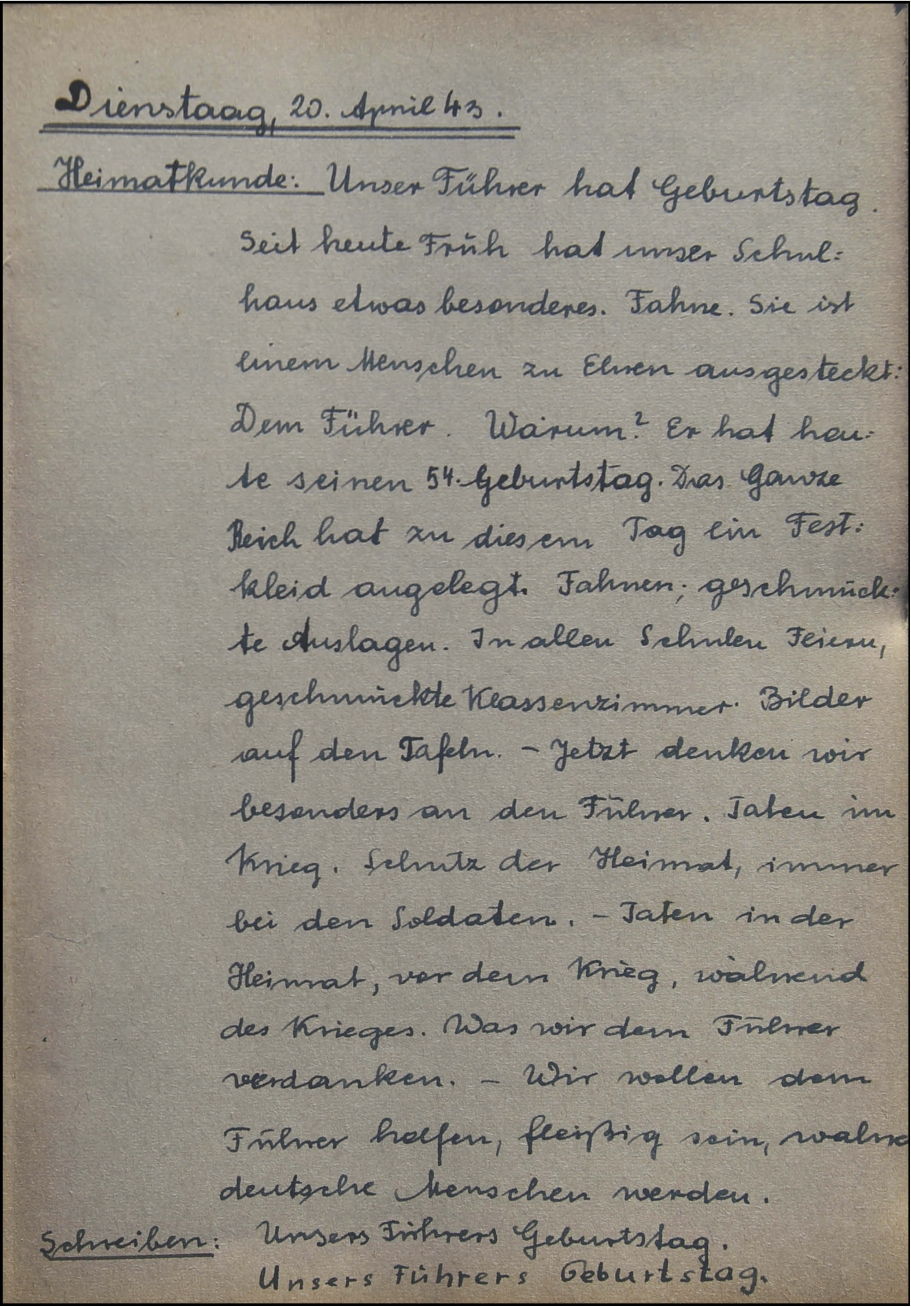 Dienstaag, 20. April 43.
Heimatkunde: Unser Führer hat Geburtstag.
Seit heute Früh hat unser Schul=
haus etwas besonderes. Fahne. Sie ist
einem Menschen zu Ehren ausgesteckt:
Dem Führer. Warum? Er hat heu=
te seinen 54. Geburtstag. Das Ganze
Reich hat zu diesem Tag ein Fest=
kleid angelegt. Fahnen; geschmück=
te Auslagen. In allen Schulen Feiern,
geschmückte Klassenzimmer. Bilder
auf den Tafeln. – Jetzt denken wir
besonders an den Führer. Taten im
Krieg. Schutz der Heimat, immer
bei den Soldaten. – Taten in der
Heimat, vor dem Krieg, während
des Krieges. Was wir dem Führer
verdanken. – Wir wollen dem
Führer helfen, fleißig sein, wahre
deutsche Menschen werden.
Schreiben: Unsers Führers Geburtstag.
Unsers Führers Geburtstag.